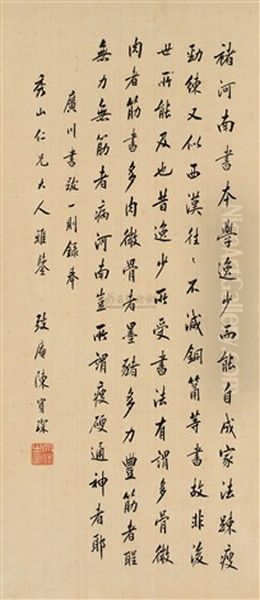 褚河南書本學逸少而能自成家法疎瘦
勁練又似西漢往〻不減銅筩等書故非後
世所能及也昔逸少所受書法有謂多骨微
肉者筋書多肉微骨者墨豬多力豐筋者聖
無力無筋者病河南豈所謂瘦硬通神者耶
廣川書跋一則錄奉
秀山仁兄大人雅鑒
弢庵陳寶琛